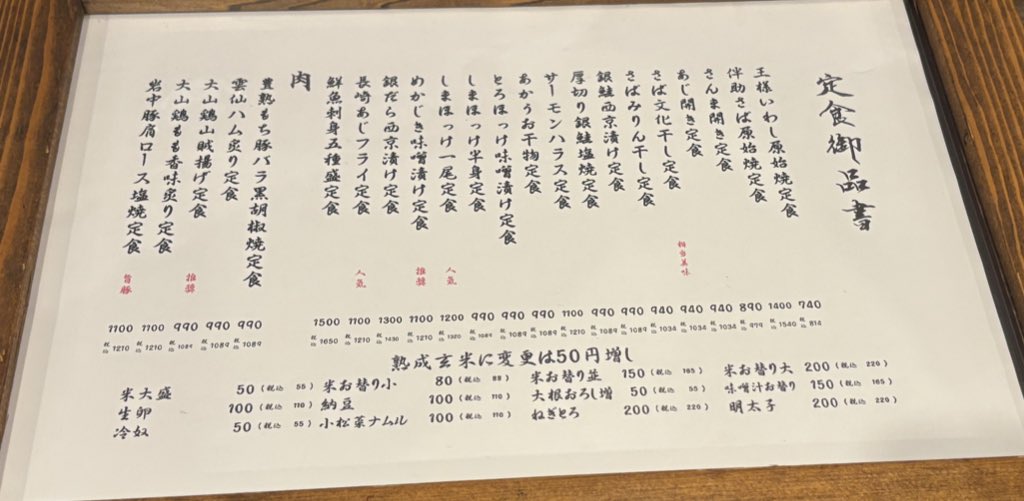 定食御品書
王様いわし原始焼定食 740 税込 814
伴助さば原始焼定食 1400 税込 1540
さんま開き定食 890 税込 979
あじ開き定食 相当美味 940 税込 1034
さば文化干し定食 940 税込 1034
さばみりん干し定食 940 税込 1034
銀鮭西京漬け定食 990 税込 1089
厚切り銀鮭塩焼定食 990 税込 1089
サーモンハラス定食 1100 税込 1210
あかうお干物定食 990 税込 1089
とろほっけ味噌漬け定食 990 税込 1089
しまほっけ半身定食 990 税込 1089
しまほっけ一尾定食 人気 1200 税込 1320
めかじき味噌漬け定食 推奨 1100 税込 1210
銀だら西京漬け定食 1300 税込 1430
長崎あじフライ定食 人気 1100 税込 1210
鮮魚刺身五種盛定食 1500 税込 1650
肉
豊熟もち豚バラ黒胡椒焼定食 990 税込 1089
雲仙ハム炙り定食 990 税込 1089
大山鶏山賊揚げ定食 990 税込 1089
大山鶏もも香味炙り定食 推奨 1100 税込 1210
岩中豚肩ロース塩焼定食 旨豚 1100 税込 1210
熟成玄米に変更は50円増し
米大盛 50(税込 55) 米お替り小 80(税込 88) 米お替り並 150(税込 165) 米お替り大 200(税込 220)
生卵 100(税込 110) 納豆 100(税込 110) 大根おろし増 50(税込 55) 味噌汁お替り 150(税込 165)
冷奴 50(税込 55) 小松菜ナムル 100(税込 110) ねぎとろ 200(税込 220) 明太子 200(税込 220)